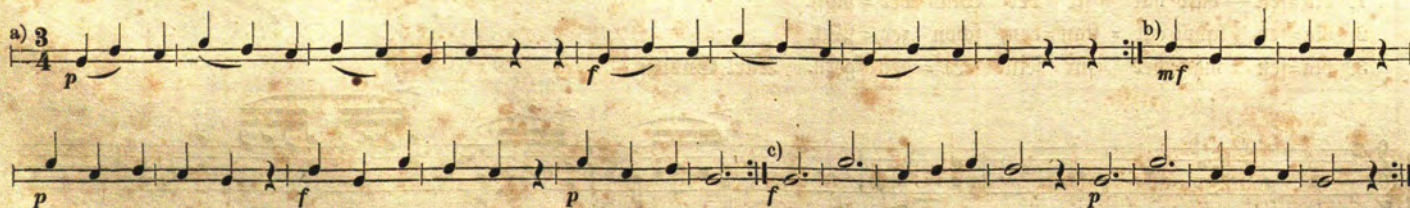 a) 3 4 p f b) mf
p f p c) f p